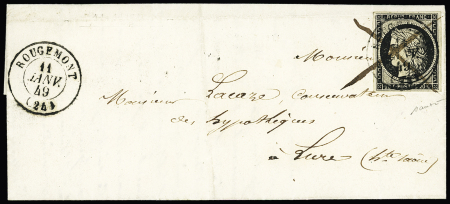 ROUGEMONT
11
JANV.
49
(24)
REPUB. FRANC.
Monsieur
Monsieur Lacaze, Conservateur
des hypothèques
à Lure (hte Saône)